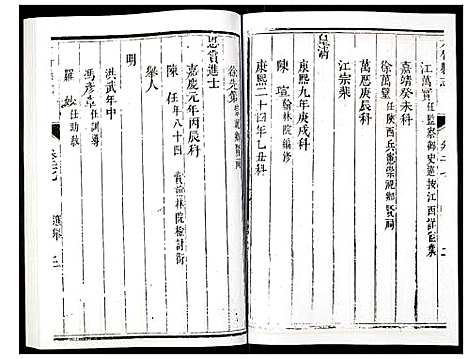 江萬實任監察御史巡按江西詳宦業
嘉靖癸未科
徐萬璧任陝西兵憲崇祀鄉賢祠
萬曆庚辰科
江宗棐
皇清
康熙九年庚戌科
陳瑄翰林院編修
康熙二十四年乙丑科
徐先第
恩賞進士
嘉慶元年丙辰科
陳任年八十四賞給翰林院檢討銜
舉人
明
洪武年中
馮彥章任訓導
羅妙任助教
選舉
二